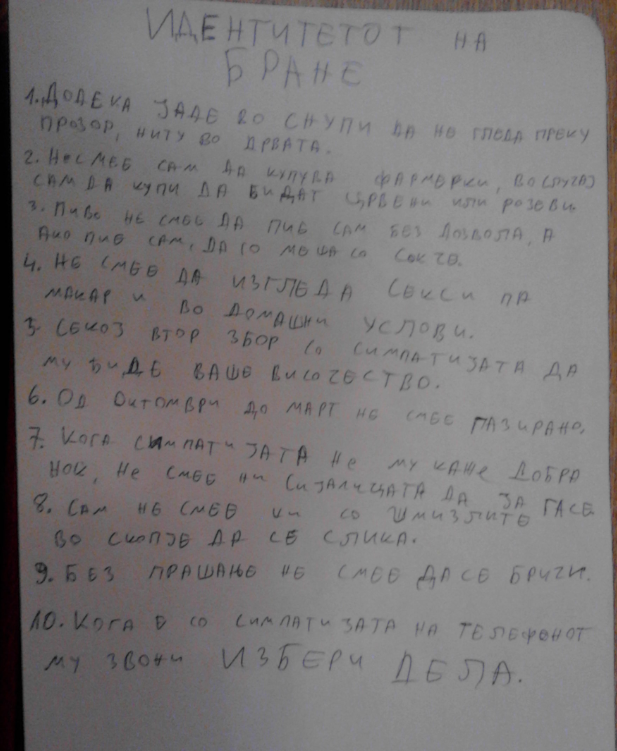 ИДЕНТИТЕТОТ НА
БРАНЕ
1. ДОДЕКА ЈАДЕ ВО СНУПИ ДА НЕ ГЛЕДА ПРЕКУ
ПРОЗОР, НИТУ ВО ВРАТА.
2. НЕСМЕЕ САМ ДА КУПУВА ФАРМЕРКИ, ВО СЛУЧАЈ
САМ ДА КУПИ ДА БИДАТ ЦРВЕНИ ИЛИ РОЗЕВИ
3. ПИВО НЕ СМЕЕ ДА ПИЕ САМ БЕЗ ДОЗВОЛА, А
АКО ПИЕ САМ, ДА ГО МЕША СО СОКЧЕ.
4. НЕ СМЕЕ ДА ИЗГЛЕДА СЕКСИ ПА
МАКАР И ВО ДОМАШНИ УСЛОВИ.
5. СЕКОЈ ВТОР ЗБОР СО СИМПАТИЈАТА ДА
МУ БИДЕ ВАШЕ ВИСОЧЕСТВО.
6. ОД ОКТОМВРИ ДО МАРТ НЕ СМЕЕ ПАЗИРАНО.
7. КОГА СИМПАТИЈАТА НЕ МУ КАЖЕ ДОБРА
НОЌ, НЕ СМЕЕ НИ СИЈАЛИЦАТА ДА ЈА ГАСЕ
8. САМ НЕ СМЕЕ НИ СО ШМИЗЛИТЕ
ВО СКОПЈЕ ДА СЕ СЛИКА.
9. БЕЗ ПРАШАЊЕ НЕ СМЕЕ ДА СЕ БРИЧИ.
10. КОГА Е СО СИМПАТИЈАТА НА ТЕЛЕФОНОТ
МУ ЗВОНИ ИЗБЕРИ ДЕЛА.